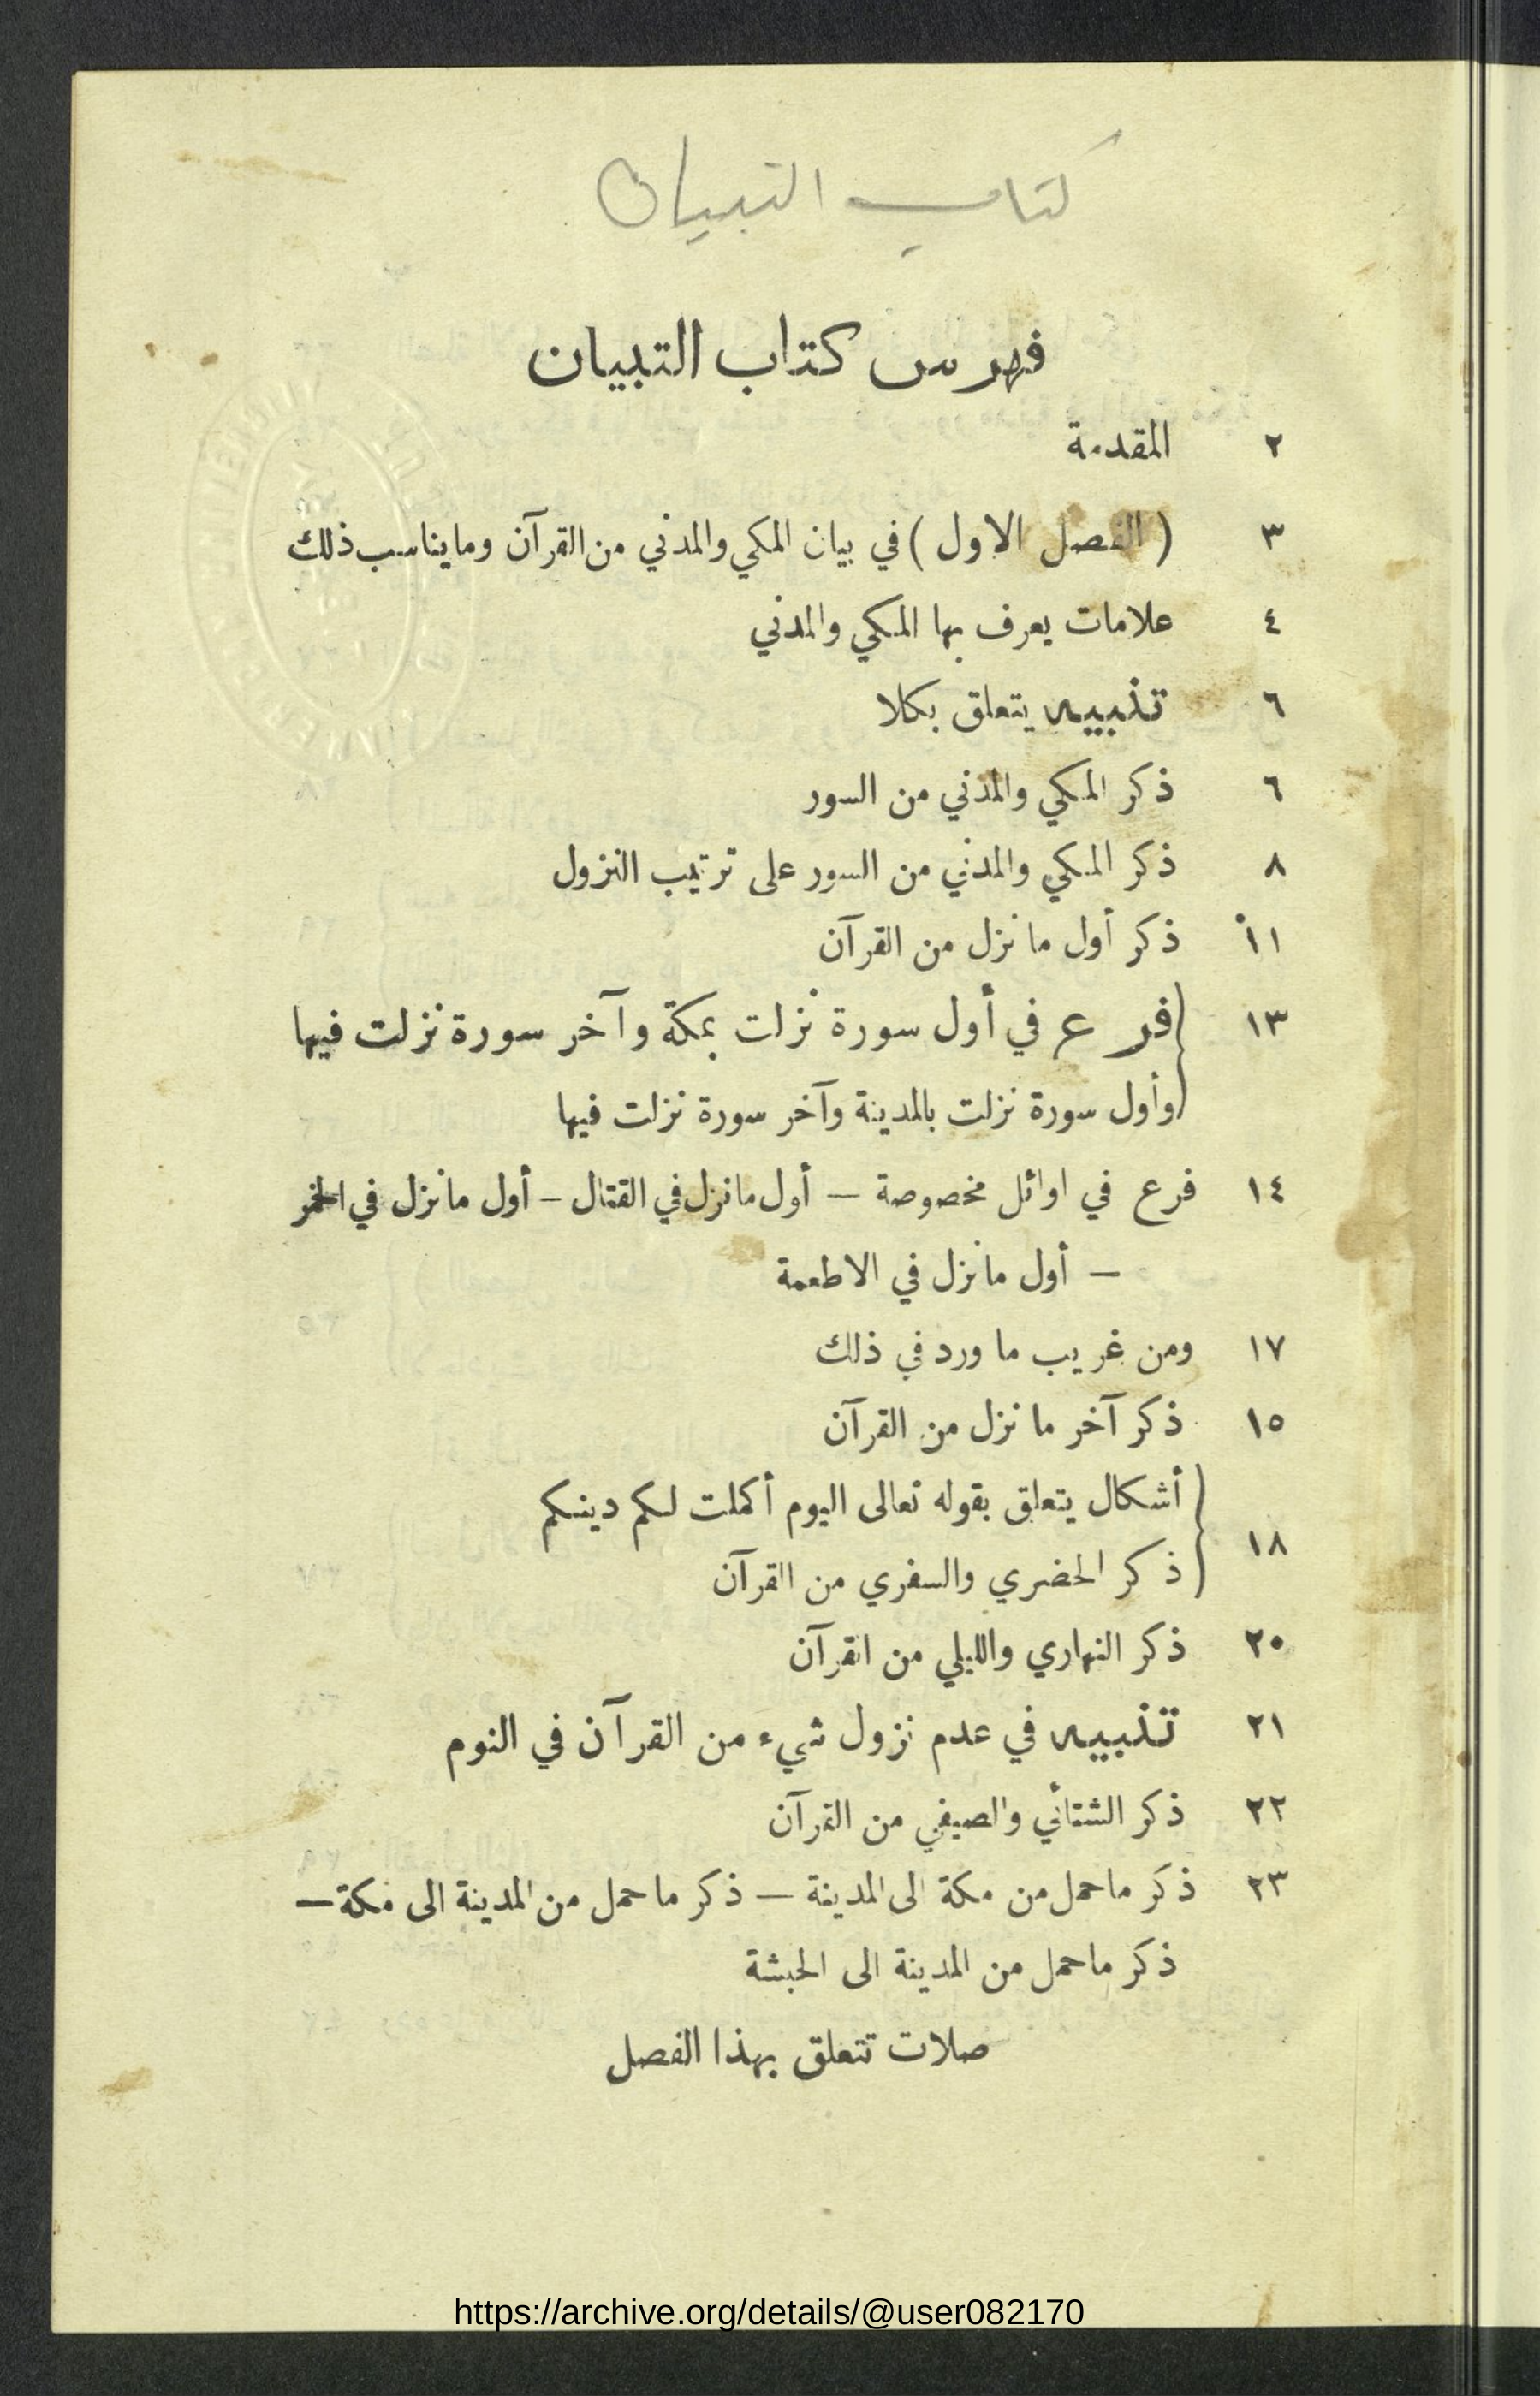 كتاب التبيان
فهرس كتاب التبيان
٢ المقدمة
٣ (الفصل الاول) في بيان المكي والمدني من القرآن وما يناسب ذلك
٤ علامات يعرف بها المكي والمدني
٦ تنبيه يتعلق بكلا
٦ ذكر المكي والمدني من السور
٨ ذكر المكي والمدني من السور على ترتيب النزول
١١ ذكر أول ما نزل من القرآن
١٣ فرع في أول سورة نزلت بمكة وآخر سورة نزلت فيها
وأول سورة نزلت بالمدينة وآخر سورة نزلت فيها
١٤ فرع في اوائل مخصوصة – أول ما نزل في القتال – أول ما نزل في الخمر
– أول ما نزل في الاطعمة
١٧ ومن غريب ما ورد في ذلك
١٥ ذكر آخر ما نزل من القرآن
١٨ أشكال يتعلق بقوله تعالى اليوم أكملت لكم دينكم
ذكر الحضري والسفري من القرآن
٢٠ ذكر النهاري والليلي من القرآن
٢١ تنبيه في عدم نزول شيء من القرآن في النوم
٢٢ ذكر الشتائي والصيفي من القرآن
٢٣ ذكر ما حمل من مكة الى المدينة – ذكر ما حمل من المدينة الى مكة –
ذكر ما حمل من المدينة الى الحبشة
صلات تتعلق بهذا الفصل
https://archive.org/details/@user082170